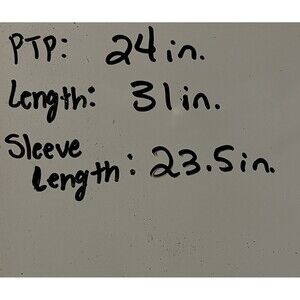 PTP: 24in.
Length: 31in.
Sleeve
Length: 23.5in.